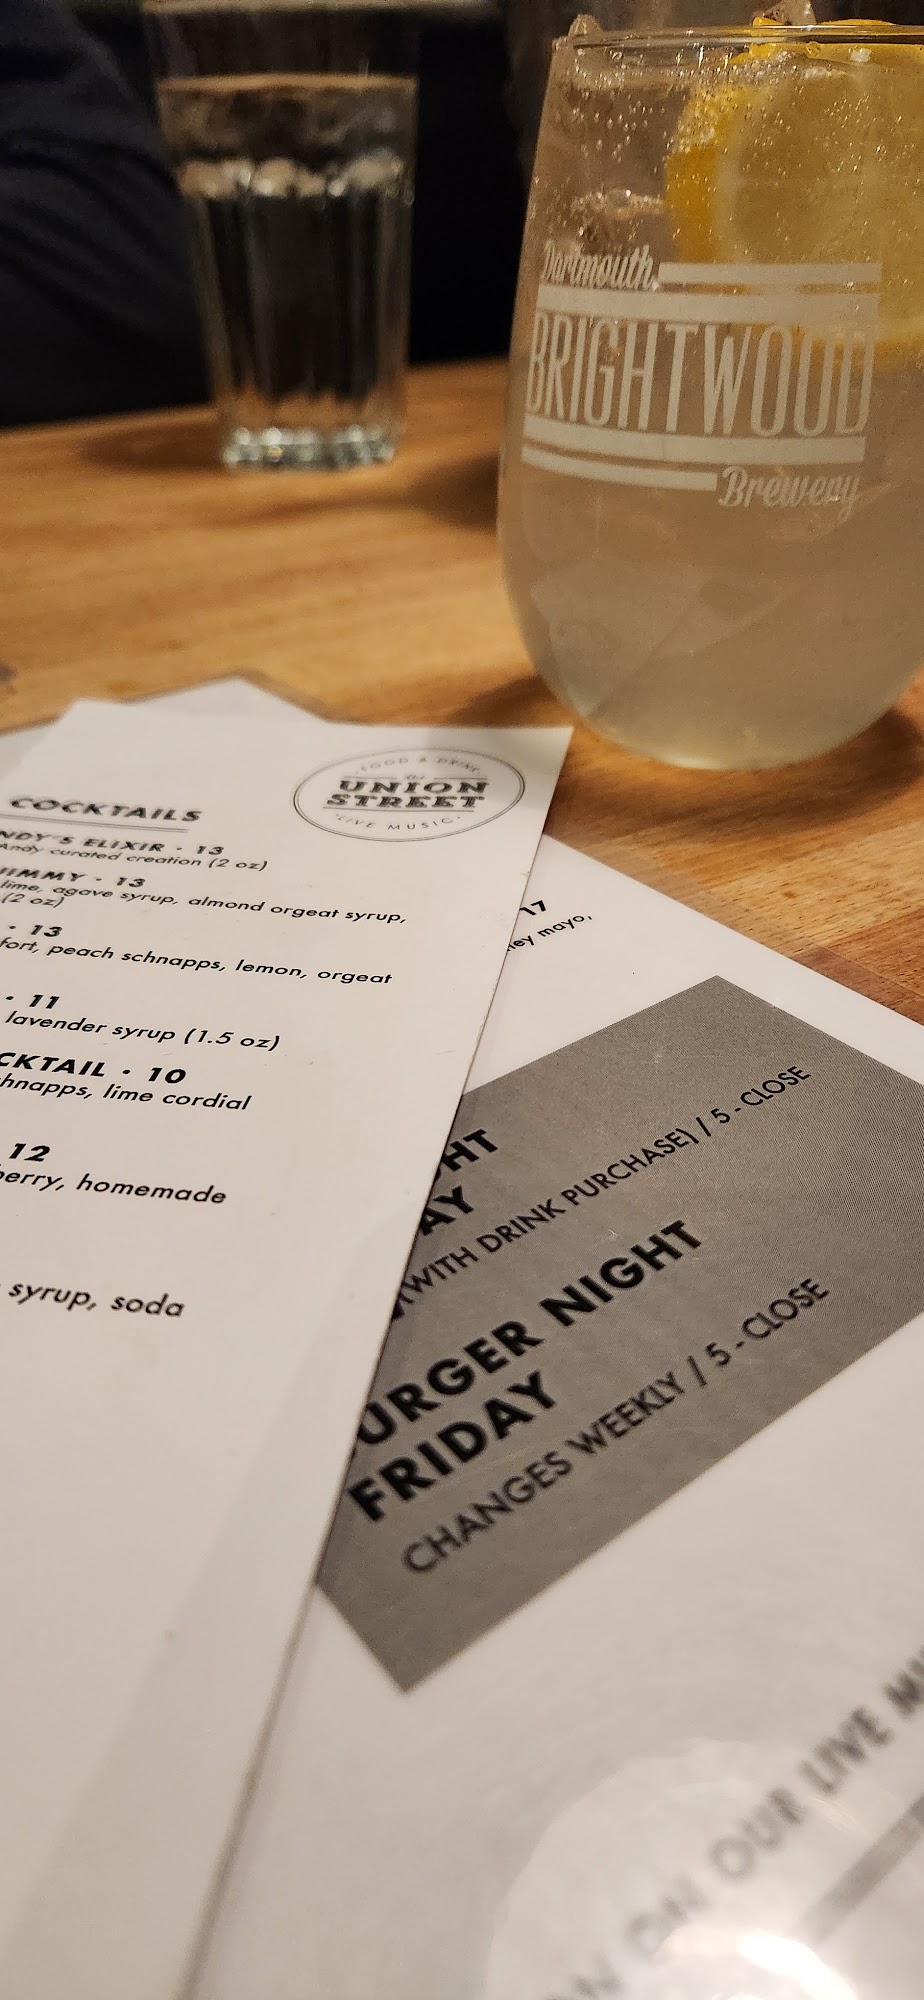 Dartmouth,
BRIGHTWOOD
Brewery
FOOD & DRINK
the
UNION
STREET
LIVE MUSIC
COCKTAILS
NDY'S ELIXIR · 13
Andy curated creation (2 oz)
JIMMY · 13
lime, agave syrup, almond orgeat syrup,
(2 oz)
· 13
fort, peach schnapps, lemon, orgeat
· 11
lavender syrup (1.5 oz)
CKTAIL · 10
hnapps, lime cordial
12
berry, homemade
syrup, soda
17
ey mayo,
HT
AY
(WITH DRINK PURCHASE) / 5 - CLOSE
URGER NIGHT
FRIDAY
CHANGES WEEKLY / 5 - CLOSE
ON OUR LIVE MU